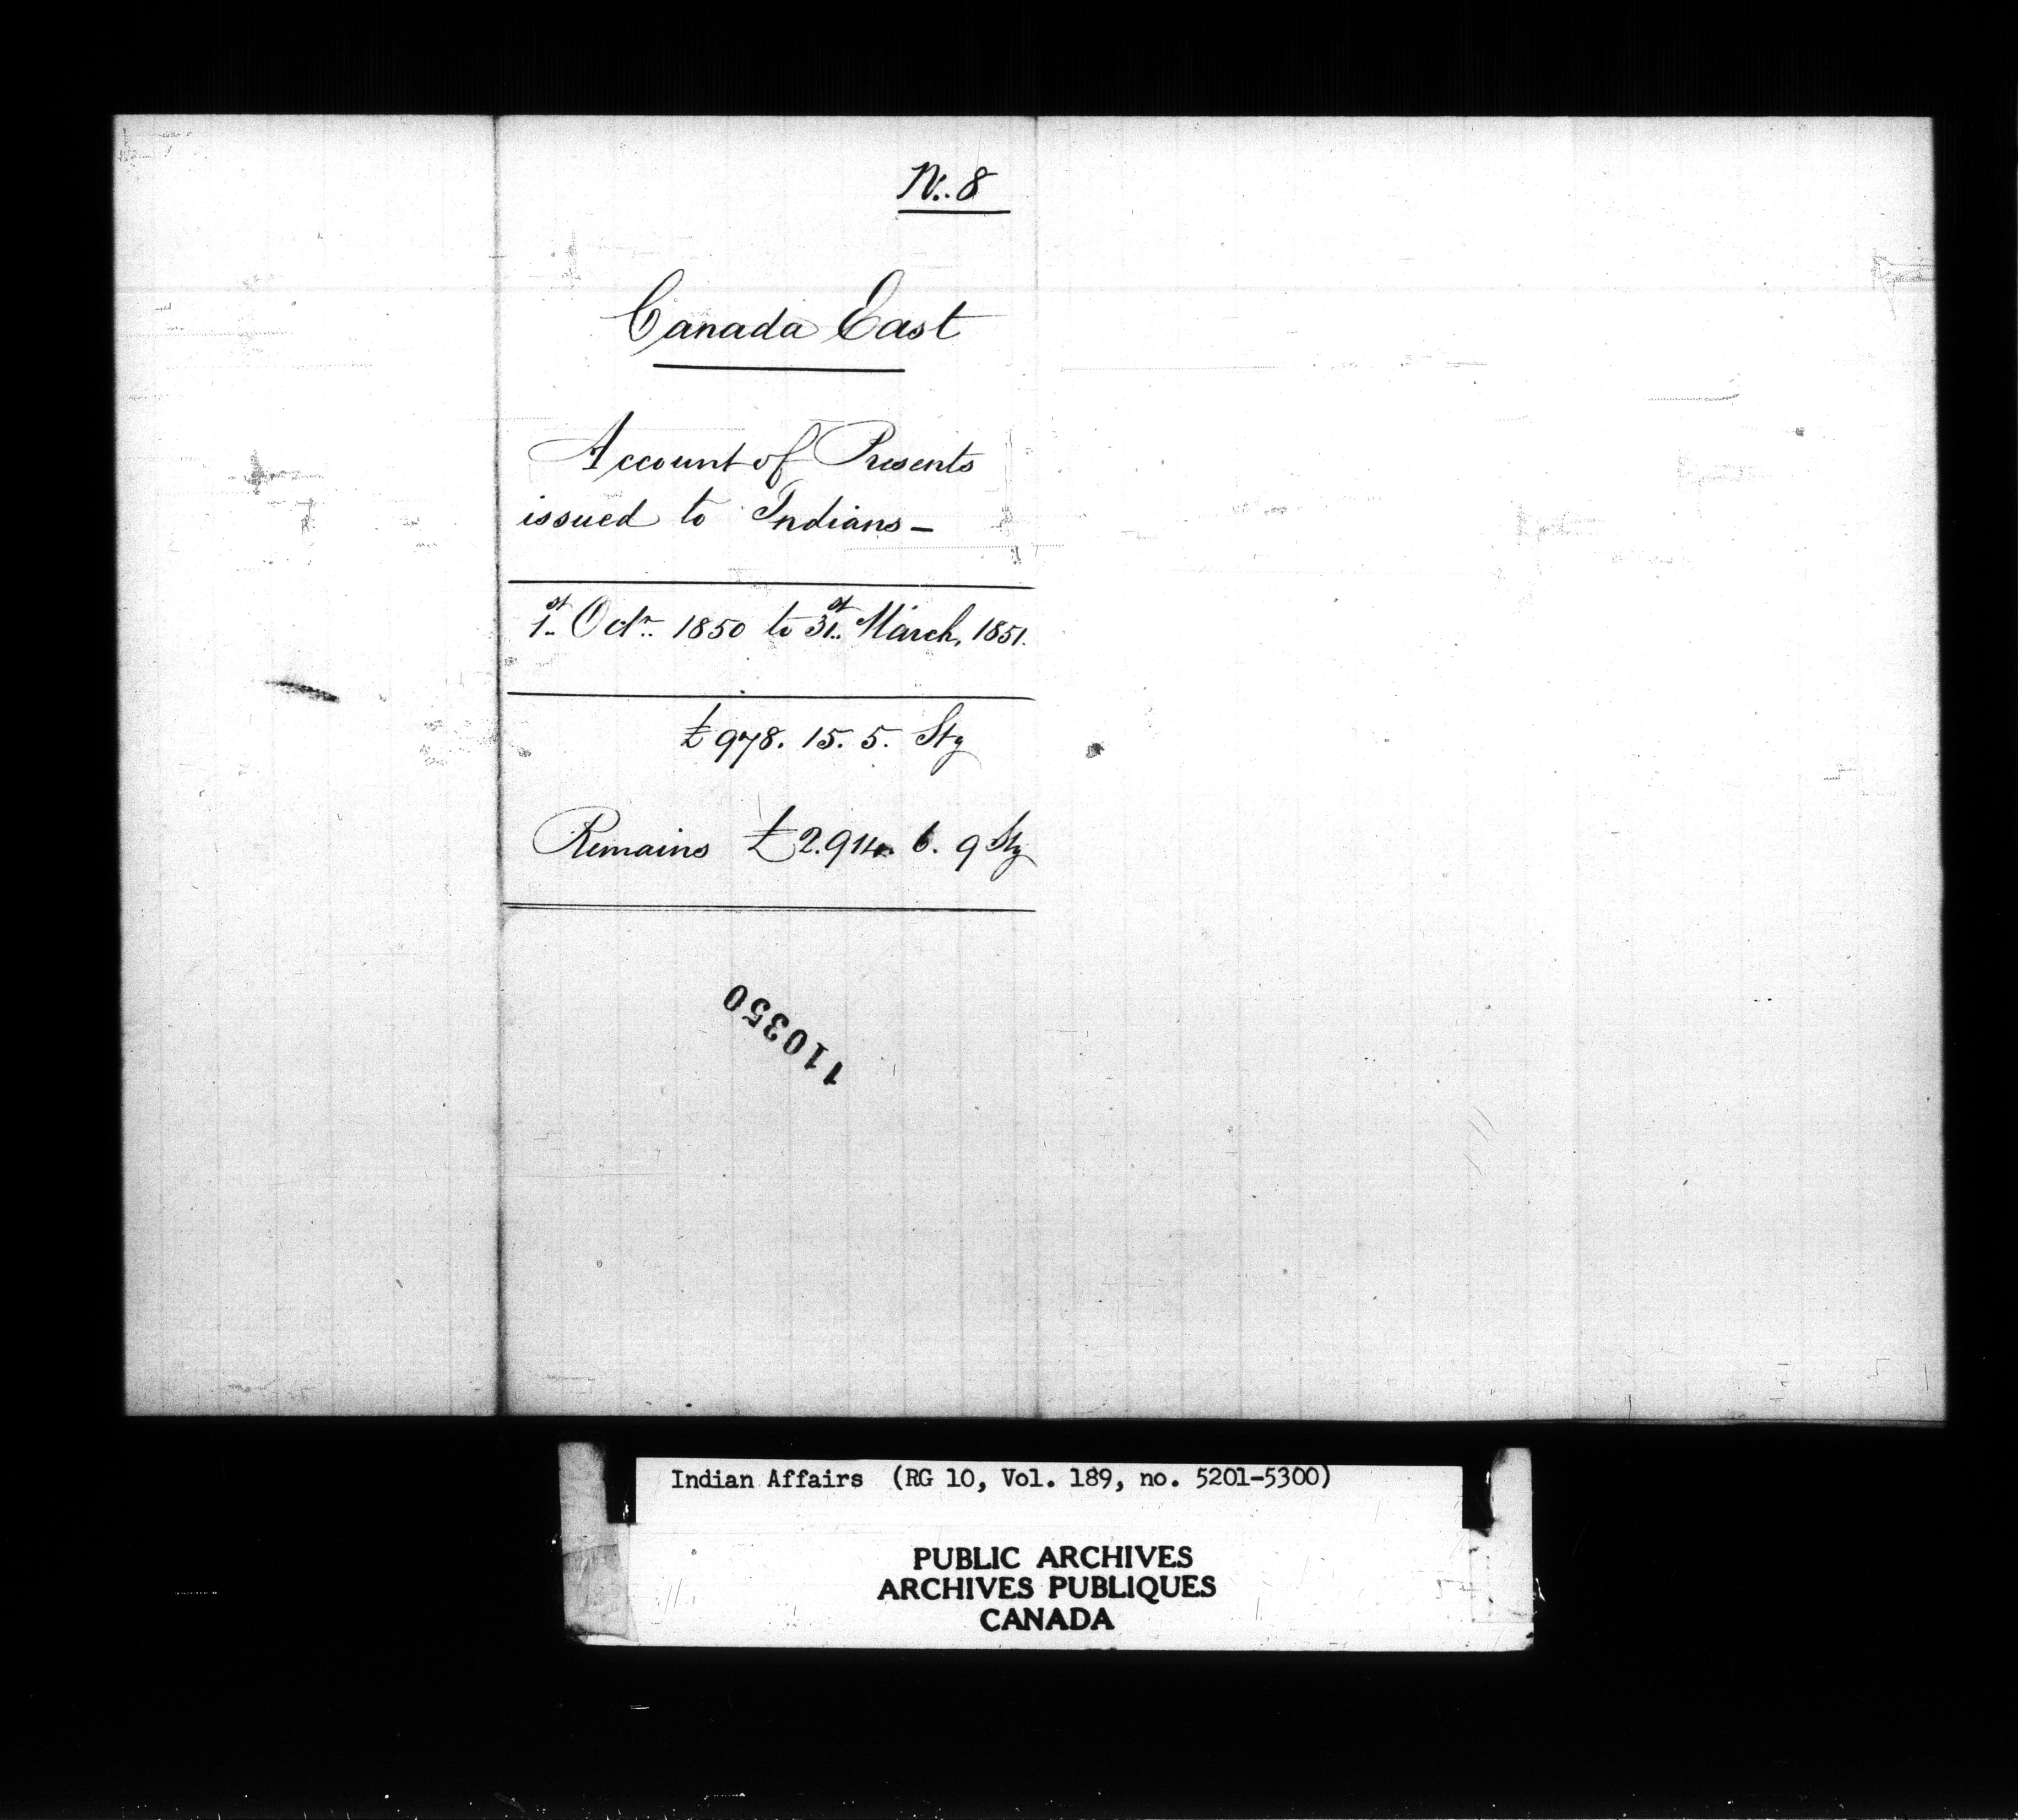 N.. 8
Canada East
Account of Presents
issued to Indians –
1st Octr. 1850 to 31st March, 1851.
£978. 15. 5. Stg
Remains £2.914. 6. 9 Stg
110350
Indian Affairs (RG 10, Vol. 189, no. 5201-5300)
PUBLIC ARCHIVES
ARCHIVES PUBLIQUES
CANADA